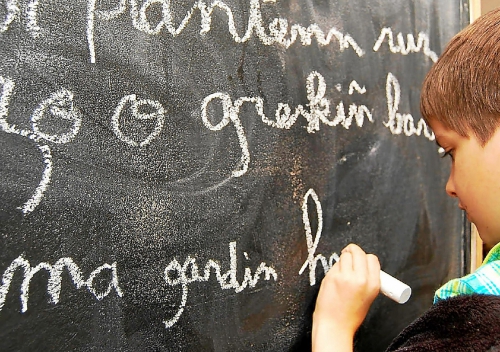 plantenn ruz
zo o greskiñ bar
ma gardin h